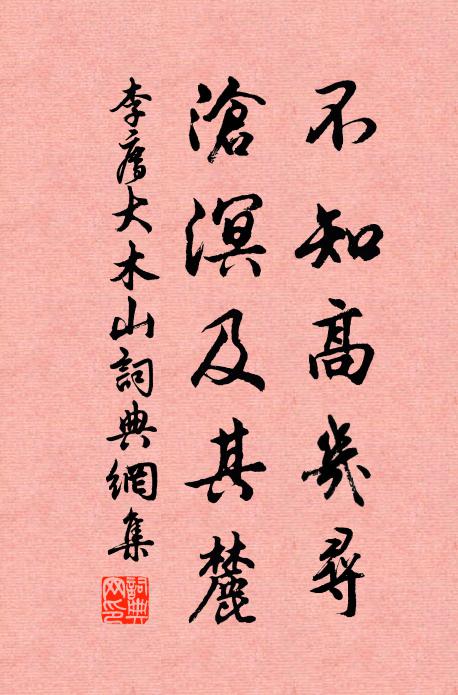 不知高幾尋
滄溟及其麓
李廌大木山詞典網集
詞典網印